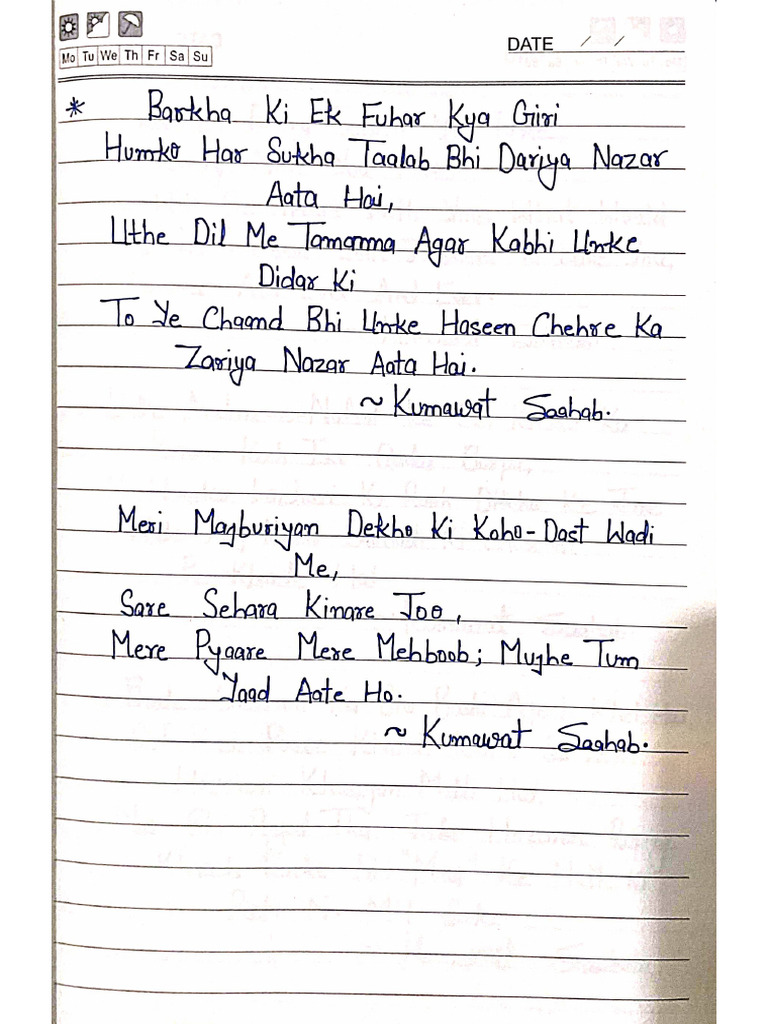 Mo Tu We Th Fr Sa Su
DATE / /
* Barkha Ki Ek Fuhar Kya Giri
Humko Har Sukha Taalab Bhi Dariya Nazar
Aata Hai,
Uthe Dil Me Tamanna Agar Kabhi Unke
Didar Ki
To Ye Chaand Bhi Unke Haseen Chehre Ka
Zariya Nazar Aata Hai.
~ Kumawat Saahab.
Meri Majburiyan Dekho Ki Koho-Dast Wadi
Me,
Sare Sehara Kinare Joo,
Mere Pyaare Mere Mehboob; Mujhe Tum
Yaad Aate Ho.
~ Kumawat Saahab.